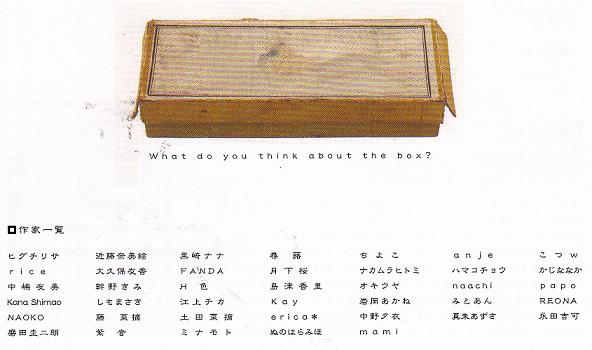 What do you think about the box?
作家一覧
ヒグチリサ 近藤奈美絵 黒崎ナナ 春 路 ちよこ anje こつw
rice 大久保友善 FANDA 月下桜 ナカムラヒトミ ハマコチョウ かじななか
中嶋友美 幹野きみ H色 島津香里 オキウヤ naachi papo
Kana Shimao しもまさき 江上チカ Kay 岩岡あかね みとあん REONA
NAOKO 藤 菜摘 土田菜摘 erica* 中野夕衣 真朱あずさ 永田吉可
磨田圭二朗 紫音 ミナモト ぬのはらみほ mami